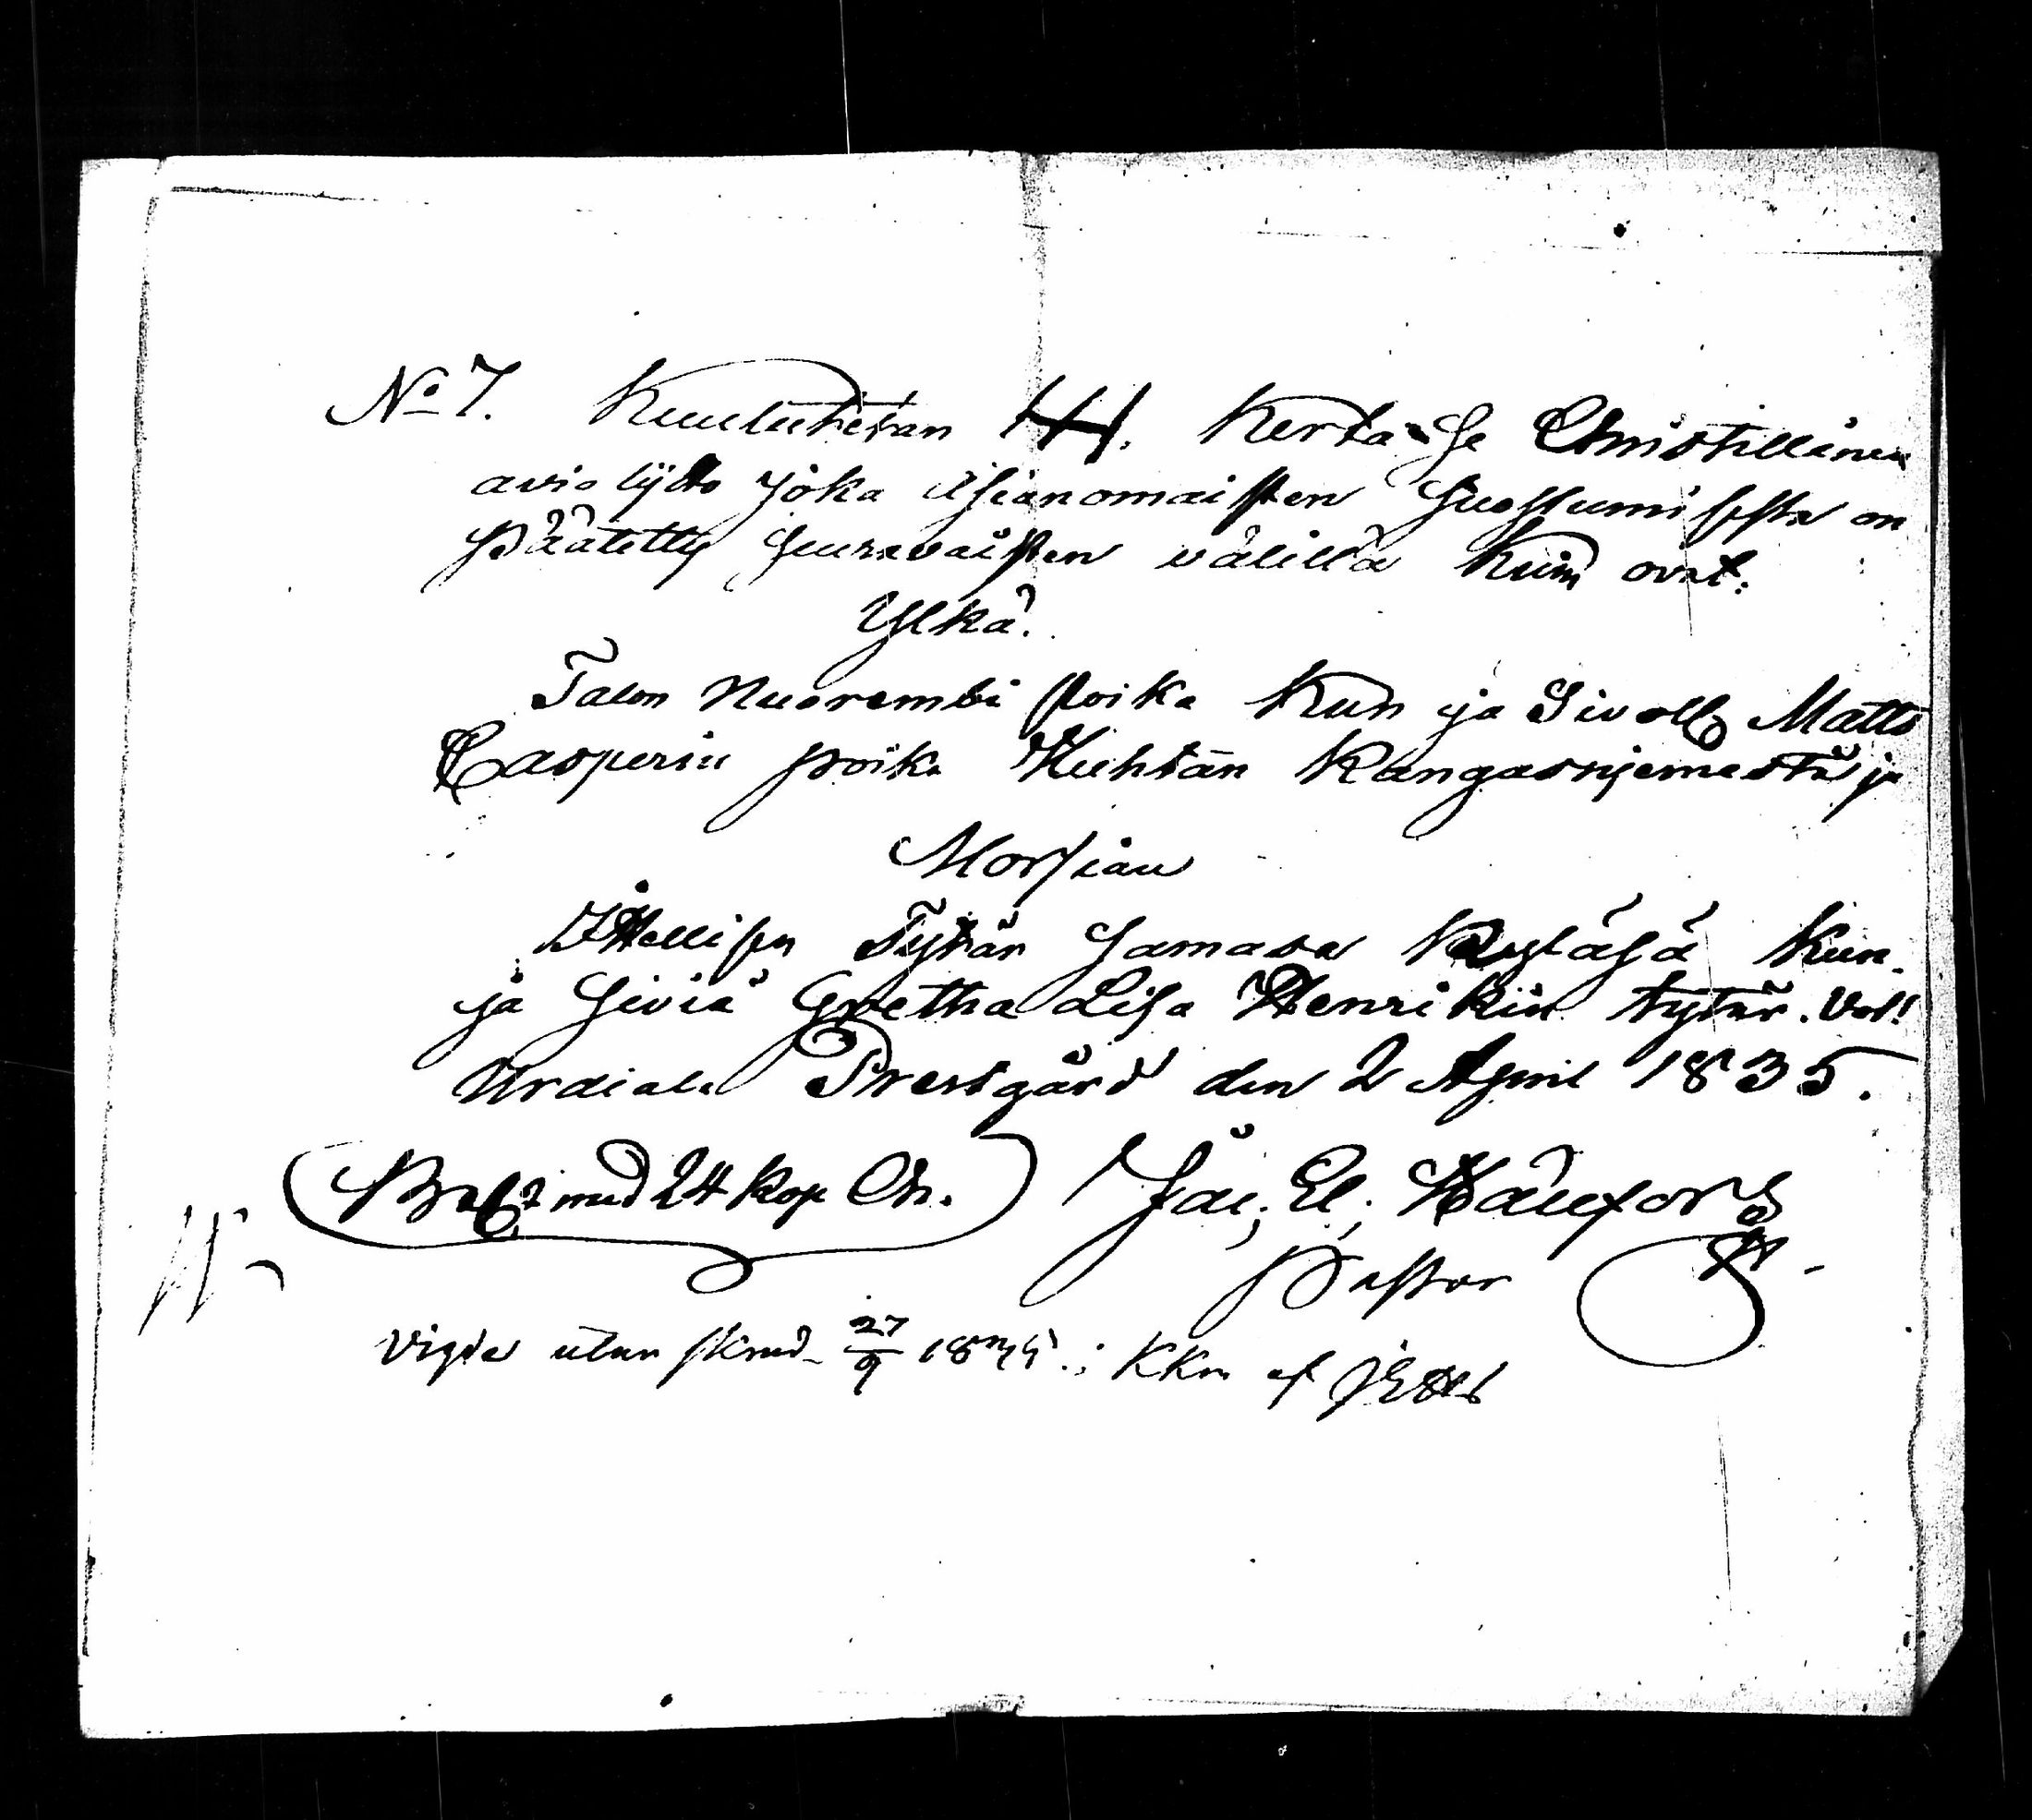 No 7. Kuulutetan III. Kerta Se Christillinen
avio lijtto joka Asianomaisten Suostumisesta on
Päätetty Seuravaisten välillä Kuin ovat:
Ylkä.
Talon Nuorembi Poika Kun ja Sivollb Matts
Casperin poika Kuhtän Kangasnjemestä ja
Morsian
Itsellisen Tytär Samasa Kyläsä Kun.
ja Siviä Gretha Lisa Henrikin tytär.
Urdiala Prestgård den 2 April 1835.
med 24 Kop Ch. Jac. El.
Pastor
Vigde utan skrud 27/9 1835. af